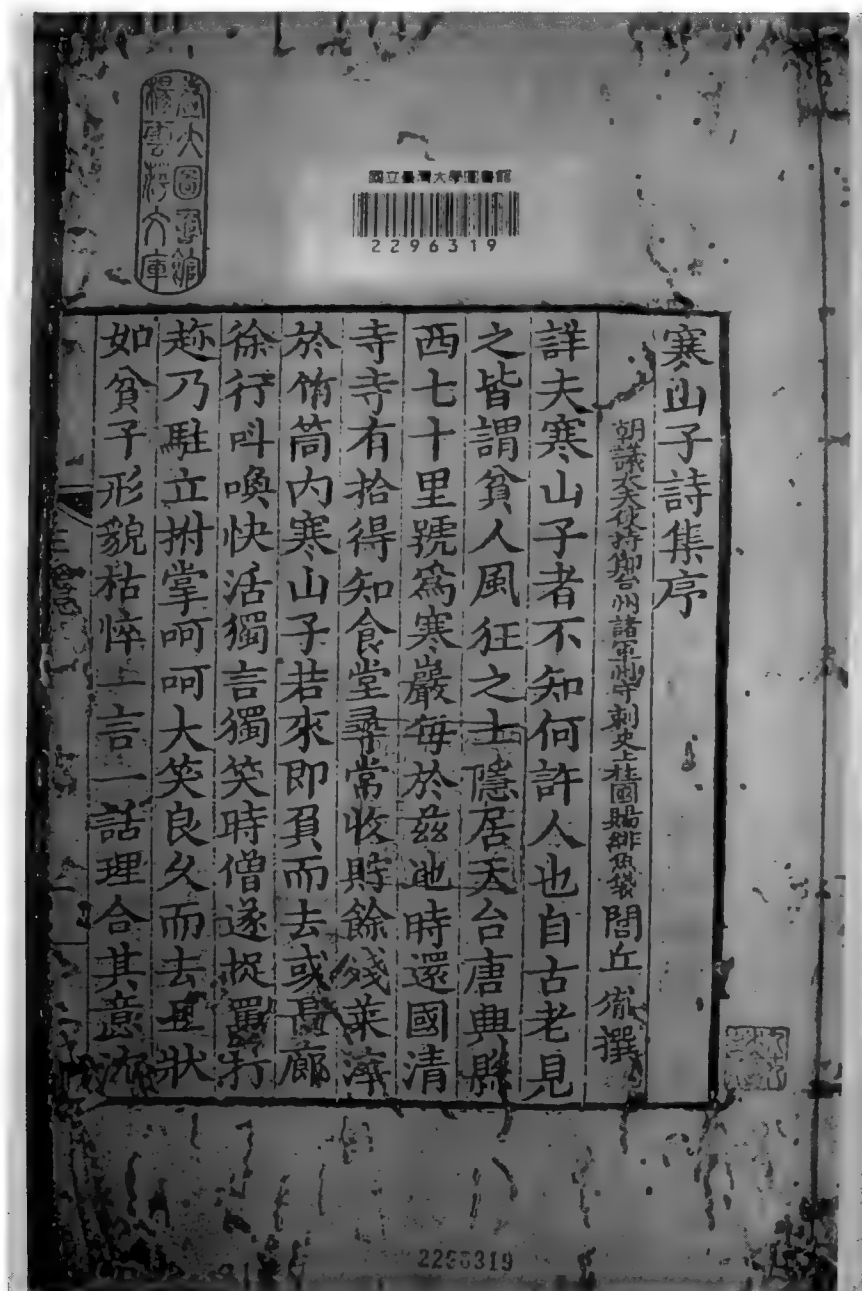 臺大圖書館
楊雲萍文庫
國立臺灣大學圖書館
2296319
寒山子詩集序
朝議大夫使持節台州諸軍州守刺史上柱國賜緋魚袋閭丘胤撰
詳夫寒山子者不知何許人也自古老見
之皆謂貧人風狂之士隱居天台唐興縣
西七十里號爲寒巖每於茲地時還國清
寺寺有拾得知食堂尋常收貯餘殘菜滓
於竹筒內寒山子若來即負而去或長廊
徐行叫喚快活獨言獨笑時僧遂捉罵打
趂乃駐立拊掌呵呵大笑良久而去且狀
如貧子形貌枯悴一言一話理合其意沉
2296319